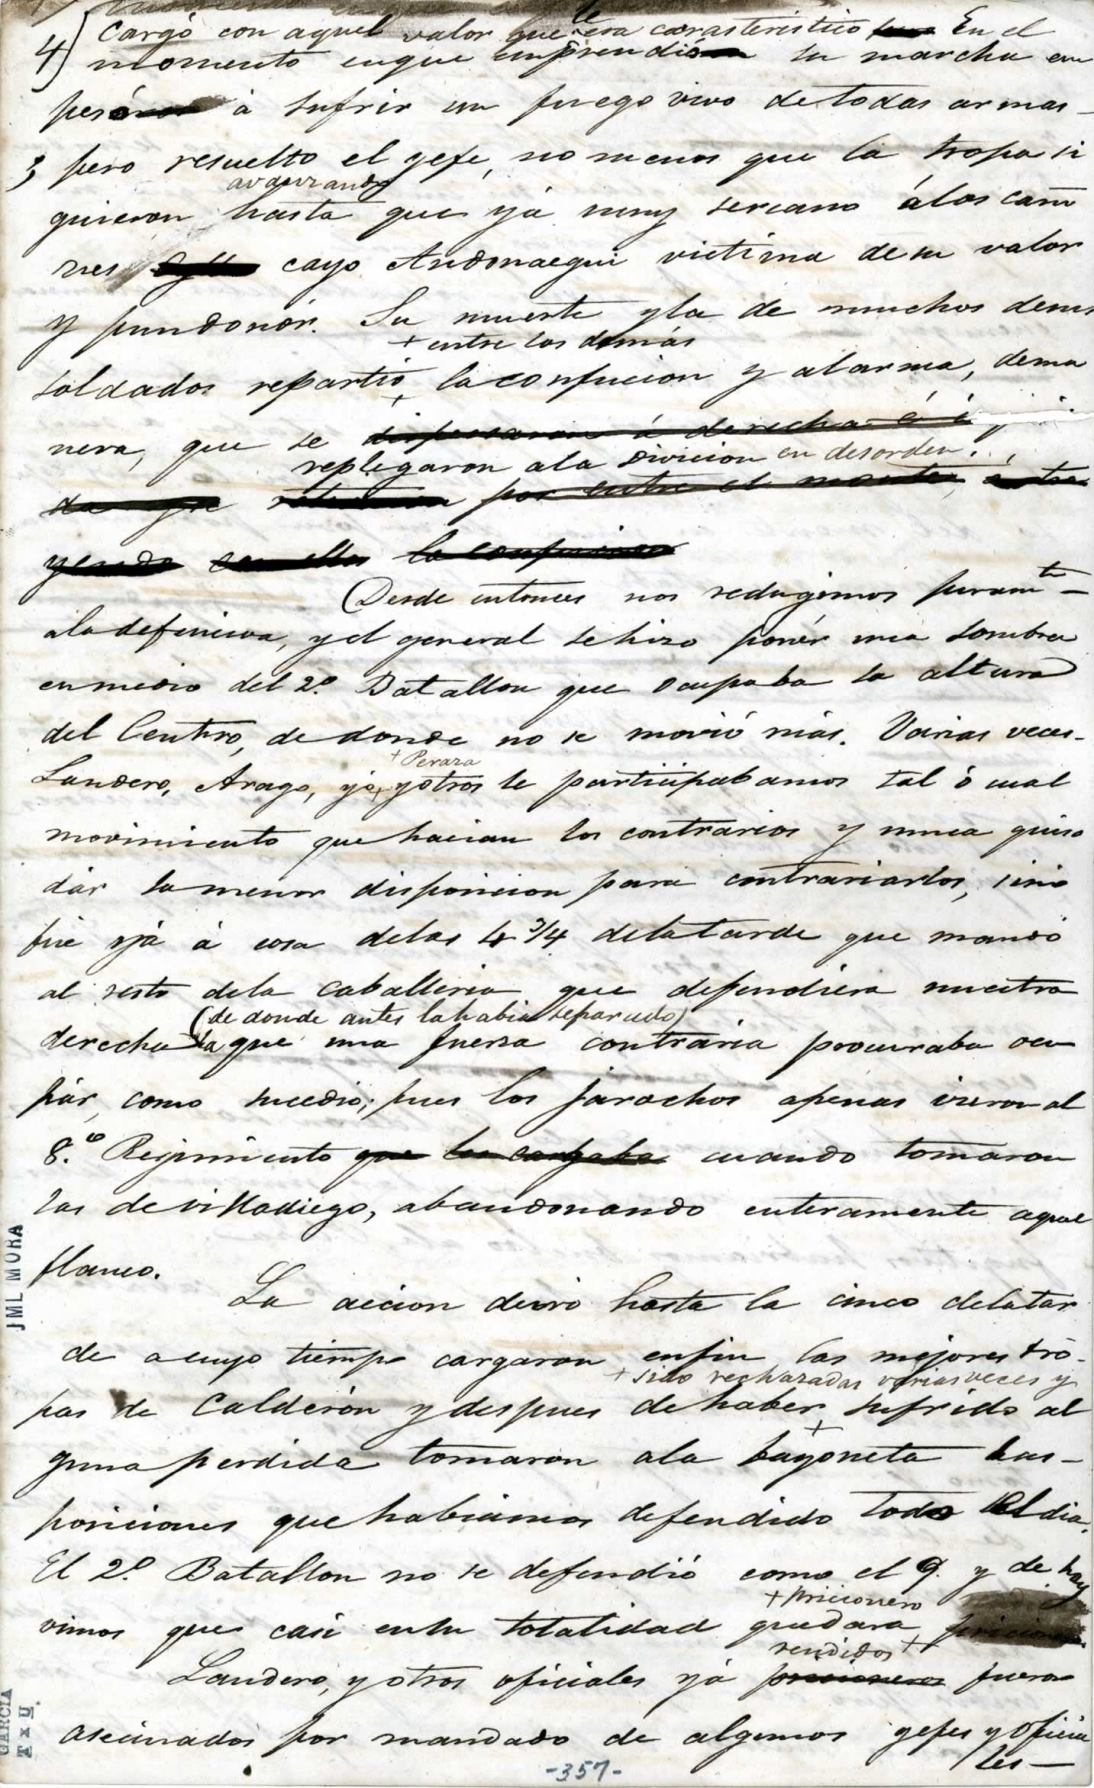 4) Cargó con aquel valor que le era caracteristico En el
momento enque emprendio su marcha em
pesó à sufrir un fuego vivo de todas armas
pero resuelto el gefe, no menos que la tropa si
avanzando
guieron hasta que yá muy sercano álos caño
nes cayo Andonaegui victima de su valor
y pundonór. Su muerte yla de muchos desus
+ entre los demás
soldados repartió + la confucion y alarma, dema
nera, que se dispersaron á derecha é i
replegaron ala Divicion en desorden.
por entre el monte,
yendo con ellos la confucion
Desde entonces nos redugimos puramte
ala defenciva, y el general se hizo ponér una sombra
en medio del 2º Batallon que ocupaba la altura
del Centro, de donde no se movió más. Varias veces
+ Peraza
Landero, Arago, yó, y otros le participabamos tal ó cual
movimiento que hacian los contrarios y nunca quiso
dár la menor disposicion para contrariarlos, sino
fué yá á cosa delas 4 3/4 dela tarde que mandó
al resto dela caballeria que defendiera nuestra
(de donde antes la habia separado)
derecha la que una fuersa contraria procuraba ocu
pár, como sucedio; pues los jarochos apenas vieron al
8.º Regimiento que los cargaba cuando tomaron
las de villadiego, abandonando enteramente aquel
flanco.
La accion duró hasta la cinco delatar
de acuyo tiempo cargaron enfin las mejores tro-
+ sido rechazadas varias veces y
pas de Calderón y despues de haber + sufrido al
guna perdida tomaron ala bayoneta las
posiciones que habiamos defendido todo el dia.
El 2º Batallon no se defendió como el 9. y de hay
+ pricionero
vimos que casi en su totalidad quedara
rendidos +
Landero, y otros oficiales yá pricioneros fueron
asecinados por mandado de algunos gefes y oficia
les
-357-
JML MORA
GARCIA